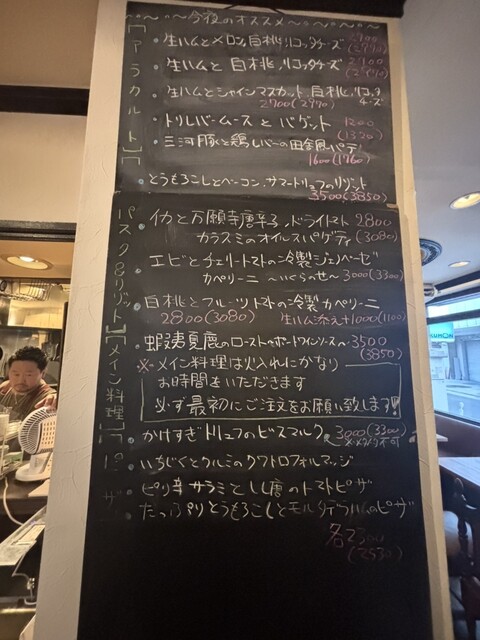 ~今夜のオススメ~
【アラカルト】
・生ハムとメロン、白桃、リコッタチーズ 2700(2970)
・生ハムと白桃、リコッタチーズ 2700(2970)
・生ハムとシャインマスカット、白桃、リコッタチーズ
2700(2970)
・トリレバームースとバゲット 1200
(1320)
・三河豚と鶏レバーの田舎風パテ
1600(1760)
・とうもろこしとベーコン、サマートリュフのリゾット
3500(3850)
【パスタ&リゾット】
・イカと万願寺唐辛子、ドライトマト 2800
カラスミのオイルスパゲティ (3080)
・エビとチェリートマトの冷製ジェノベーゼ
カペリーニ ~いくらのせ~ 3000(3300)
・白桃とフルーツトマトの冷製カペリーニ
2800(3080) 生ハム添え+1000(1100)
【メイン料理】
・蝦夷夏鹿のロースト~ポートワインソース~ 3500
(3850)
※メイン料理は火入れにかなり
お時間をいただきます
必ず最初にご注文をお願い致します!!
【ピザ】
・かけすぎトリュフのビスマルク 3000(3300)
・いちじくとクルミのクワトロフォルマッジ
・ピリ辛サラミとしし唐のトマトピザ
・たっぷりとうもろこしとモルタデラハムのピザ
各2300
(2530)
KUMON